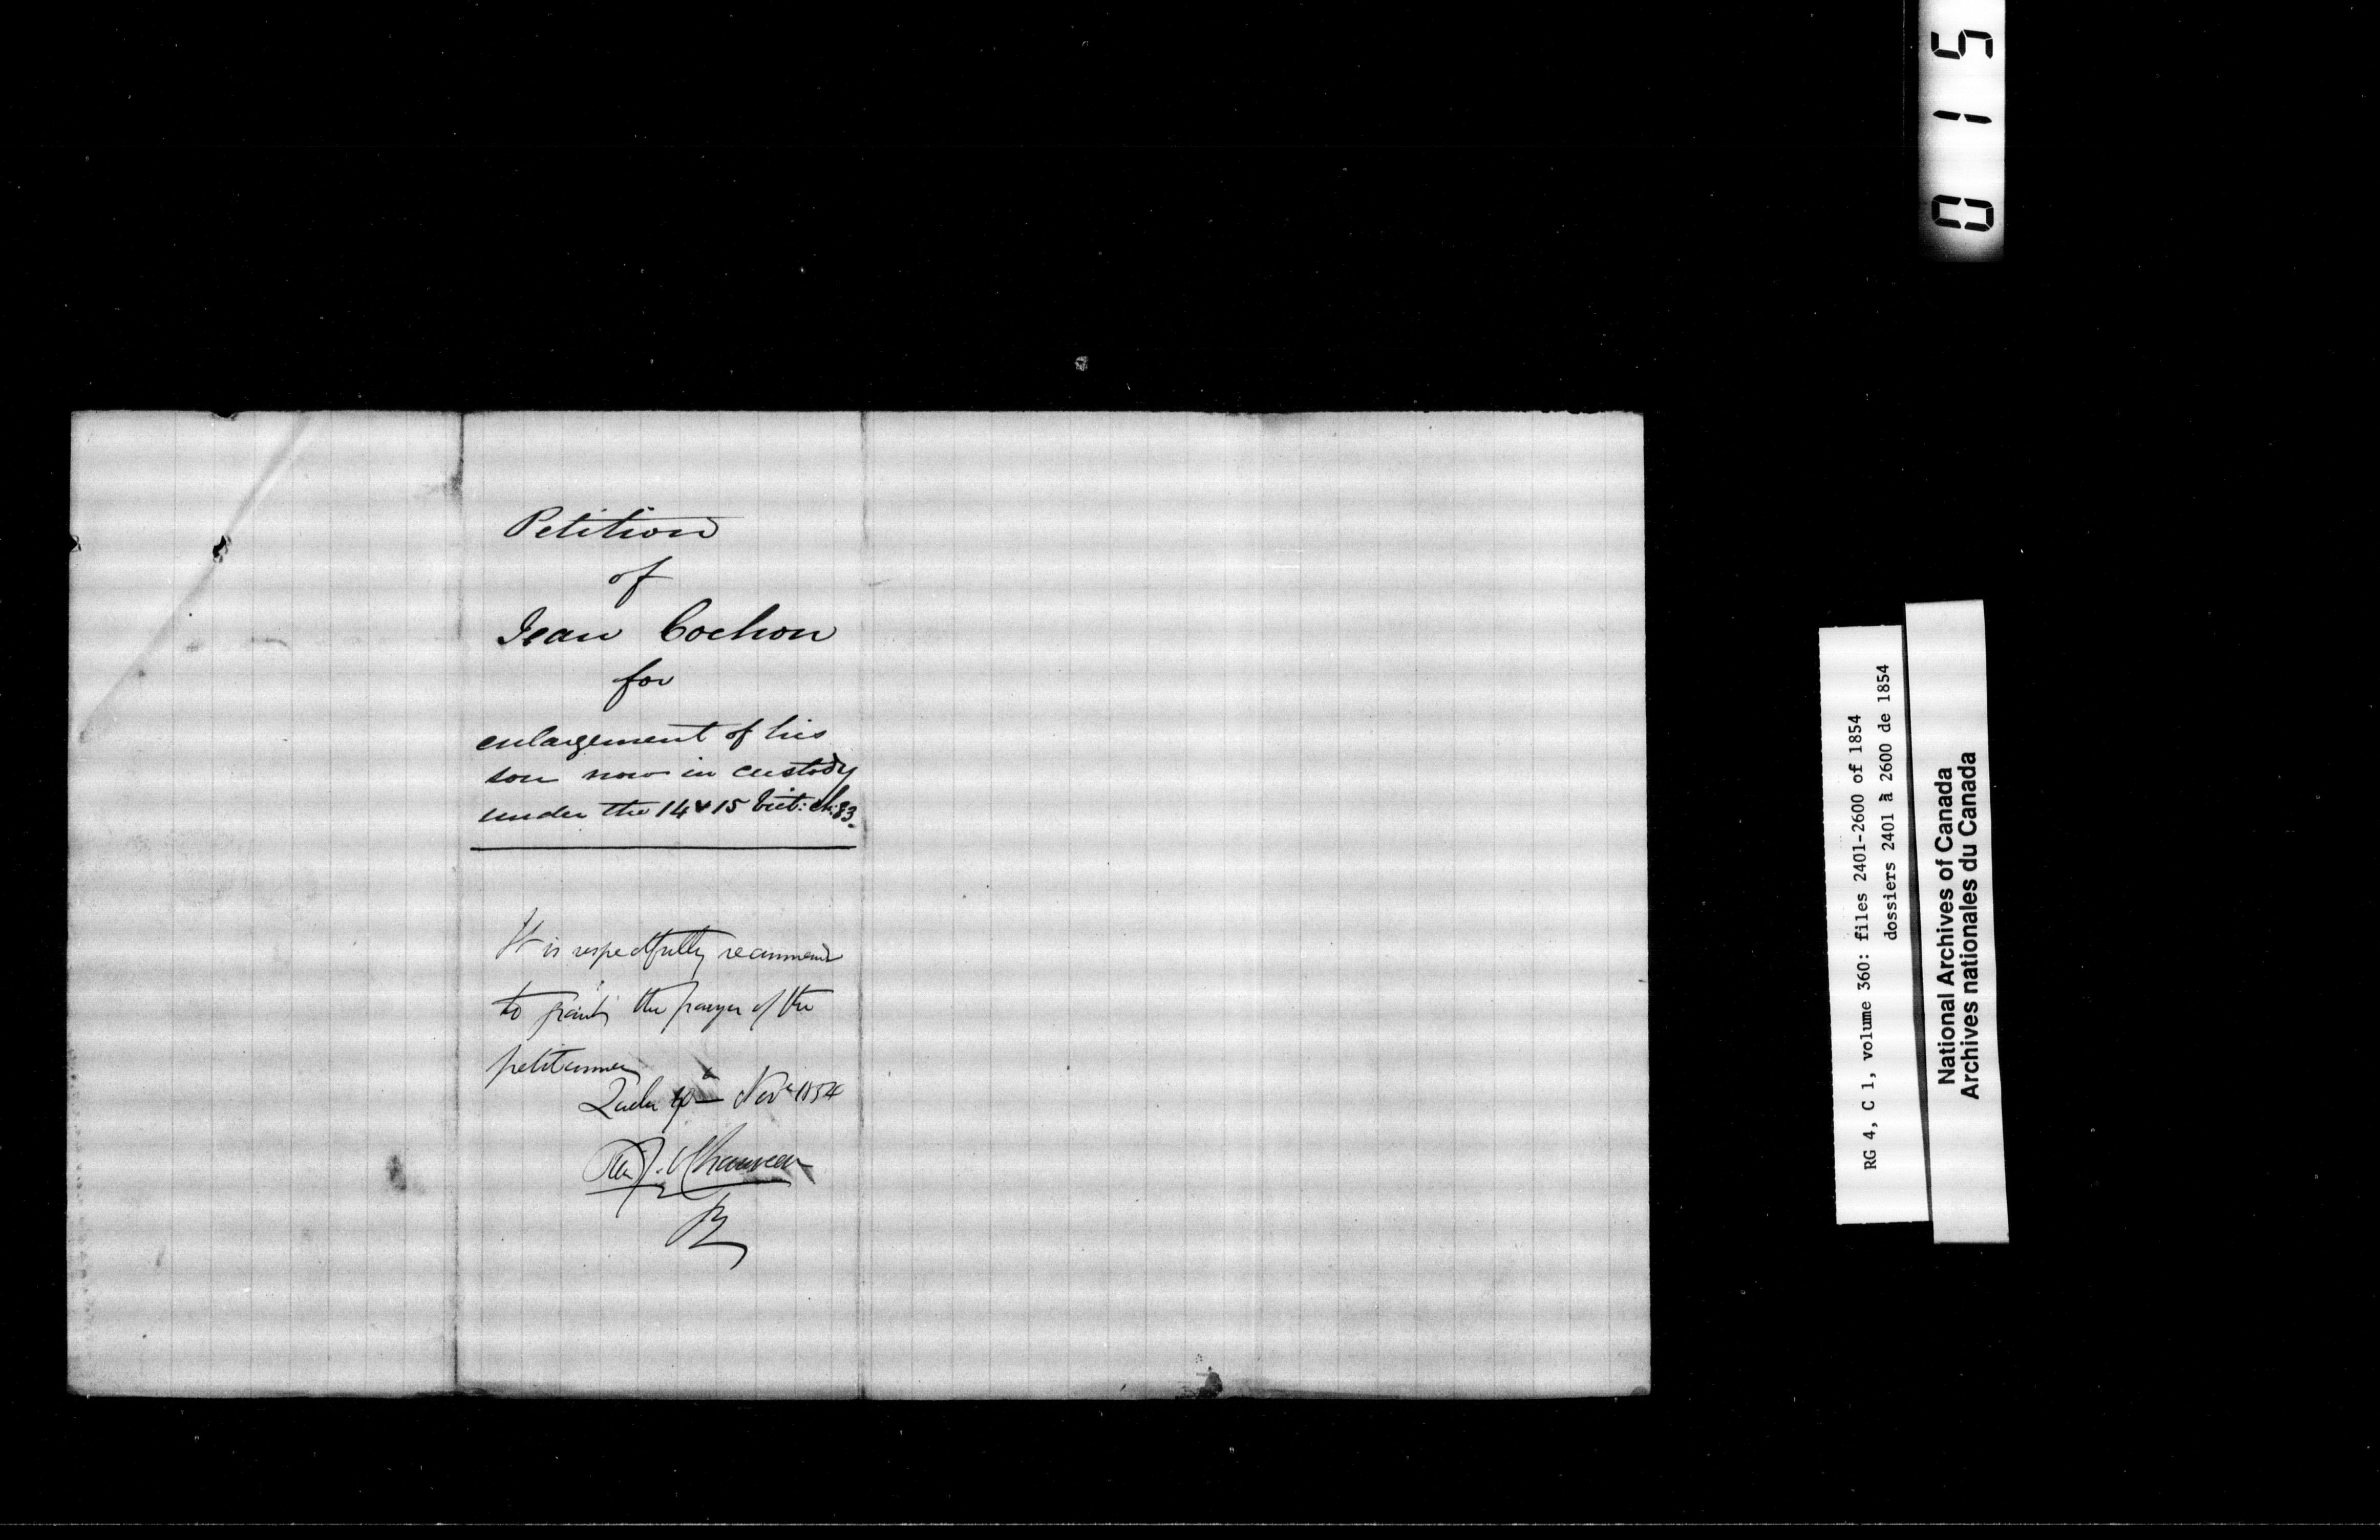 Petition
of
Jean Cochon
for
enlargement of his
son now in custody
under the 14 & 15 Vict: ch: 83.
It is respectfully recommend
to grant the prayer of the
petitioner
Nov 1854
Chauveau
0 1 5
RG 4, C 1, volume 360: files 2401-2600 of 1854
dossiers 2401 à 2600 de 1854
National Archives of Canada
Archives nationales du Canada